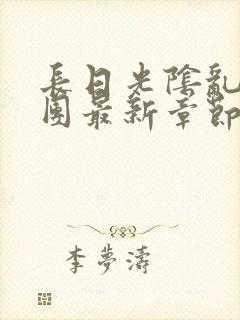 長日光陰亂
團最新章節
李夢濤